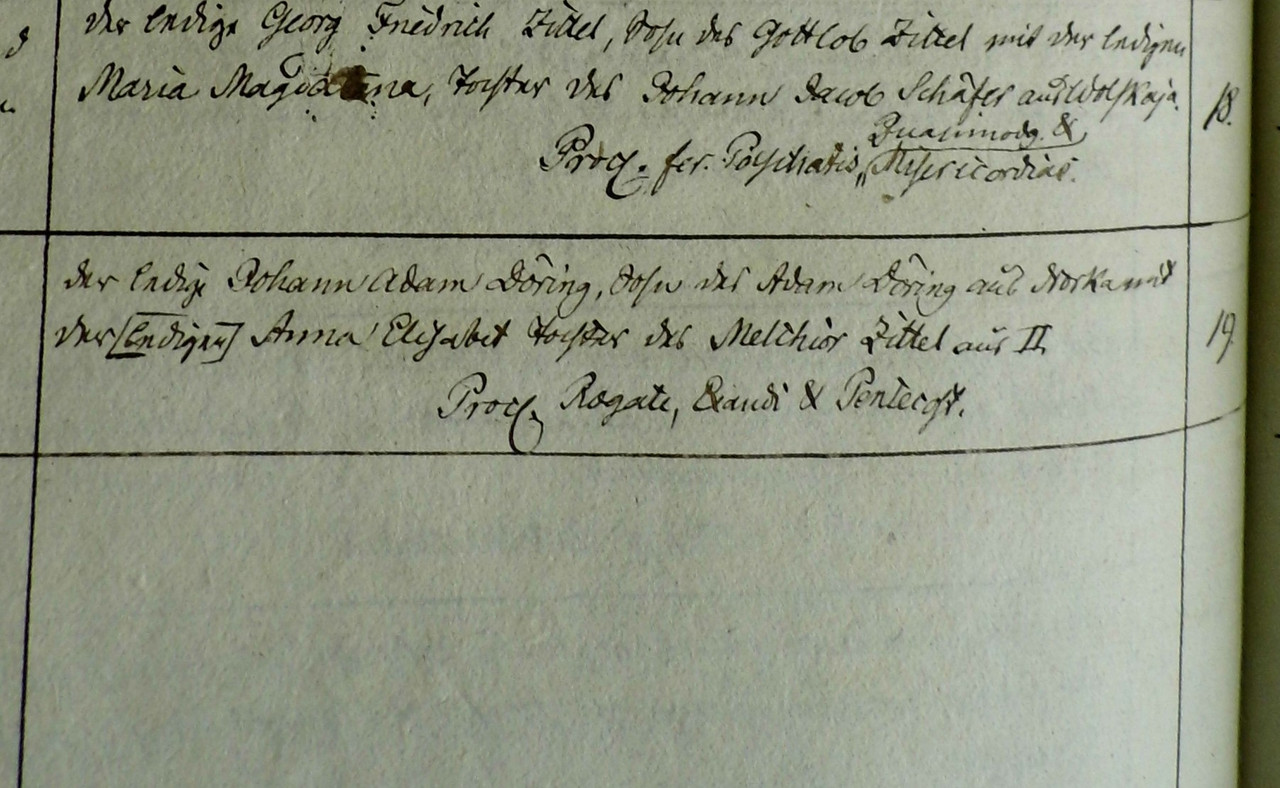 der ledige Georg Friedrich Zittel, Sohn des Gottlob Zittel mit der ledigen
Maria Magdalena, Tochter des Johann Jacob Schäfer aus Wolskaja. 18.
Quasimodg. &
Procl. fer. Paschatis, Misericordias.
der ledige Johann Adam Döring, Sohn des Adam Döring aus Norka mit
der [ledigen] Anna Elisabet Tochter des Melchior Zittel aus II 19.
Procl. Rogate, Exaudi & Pentecost.